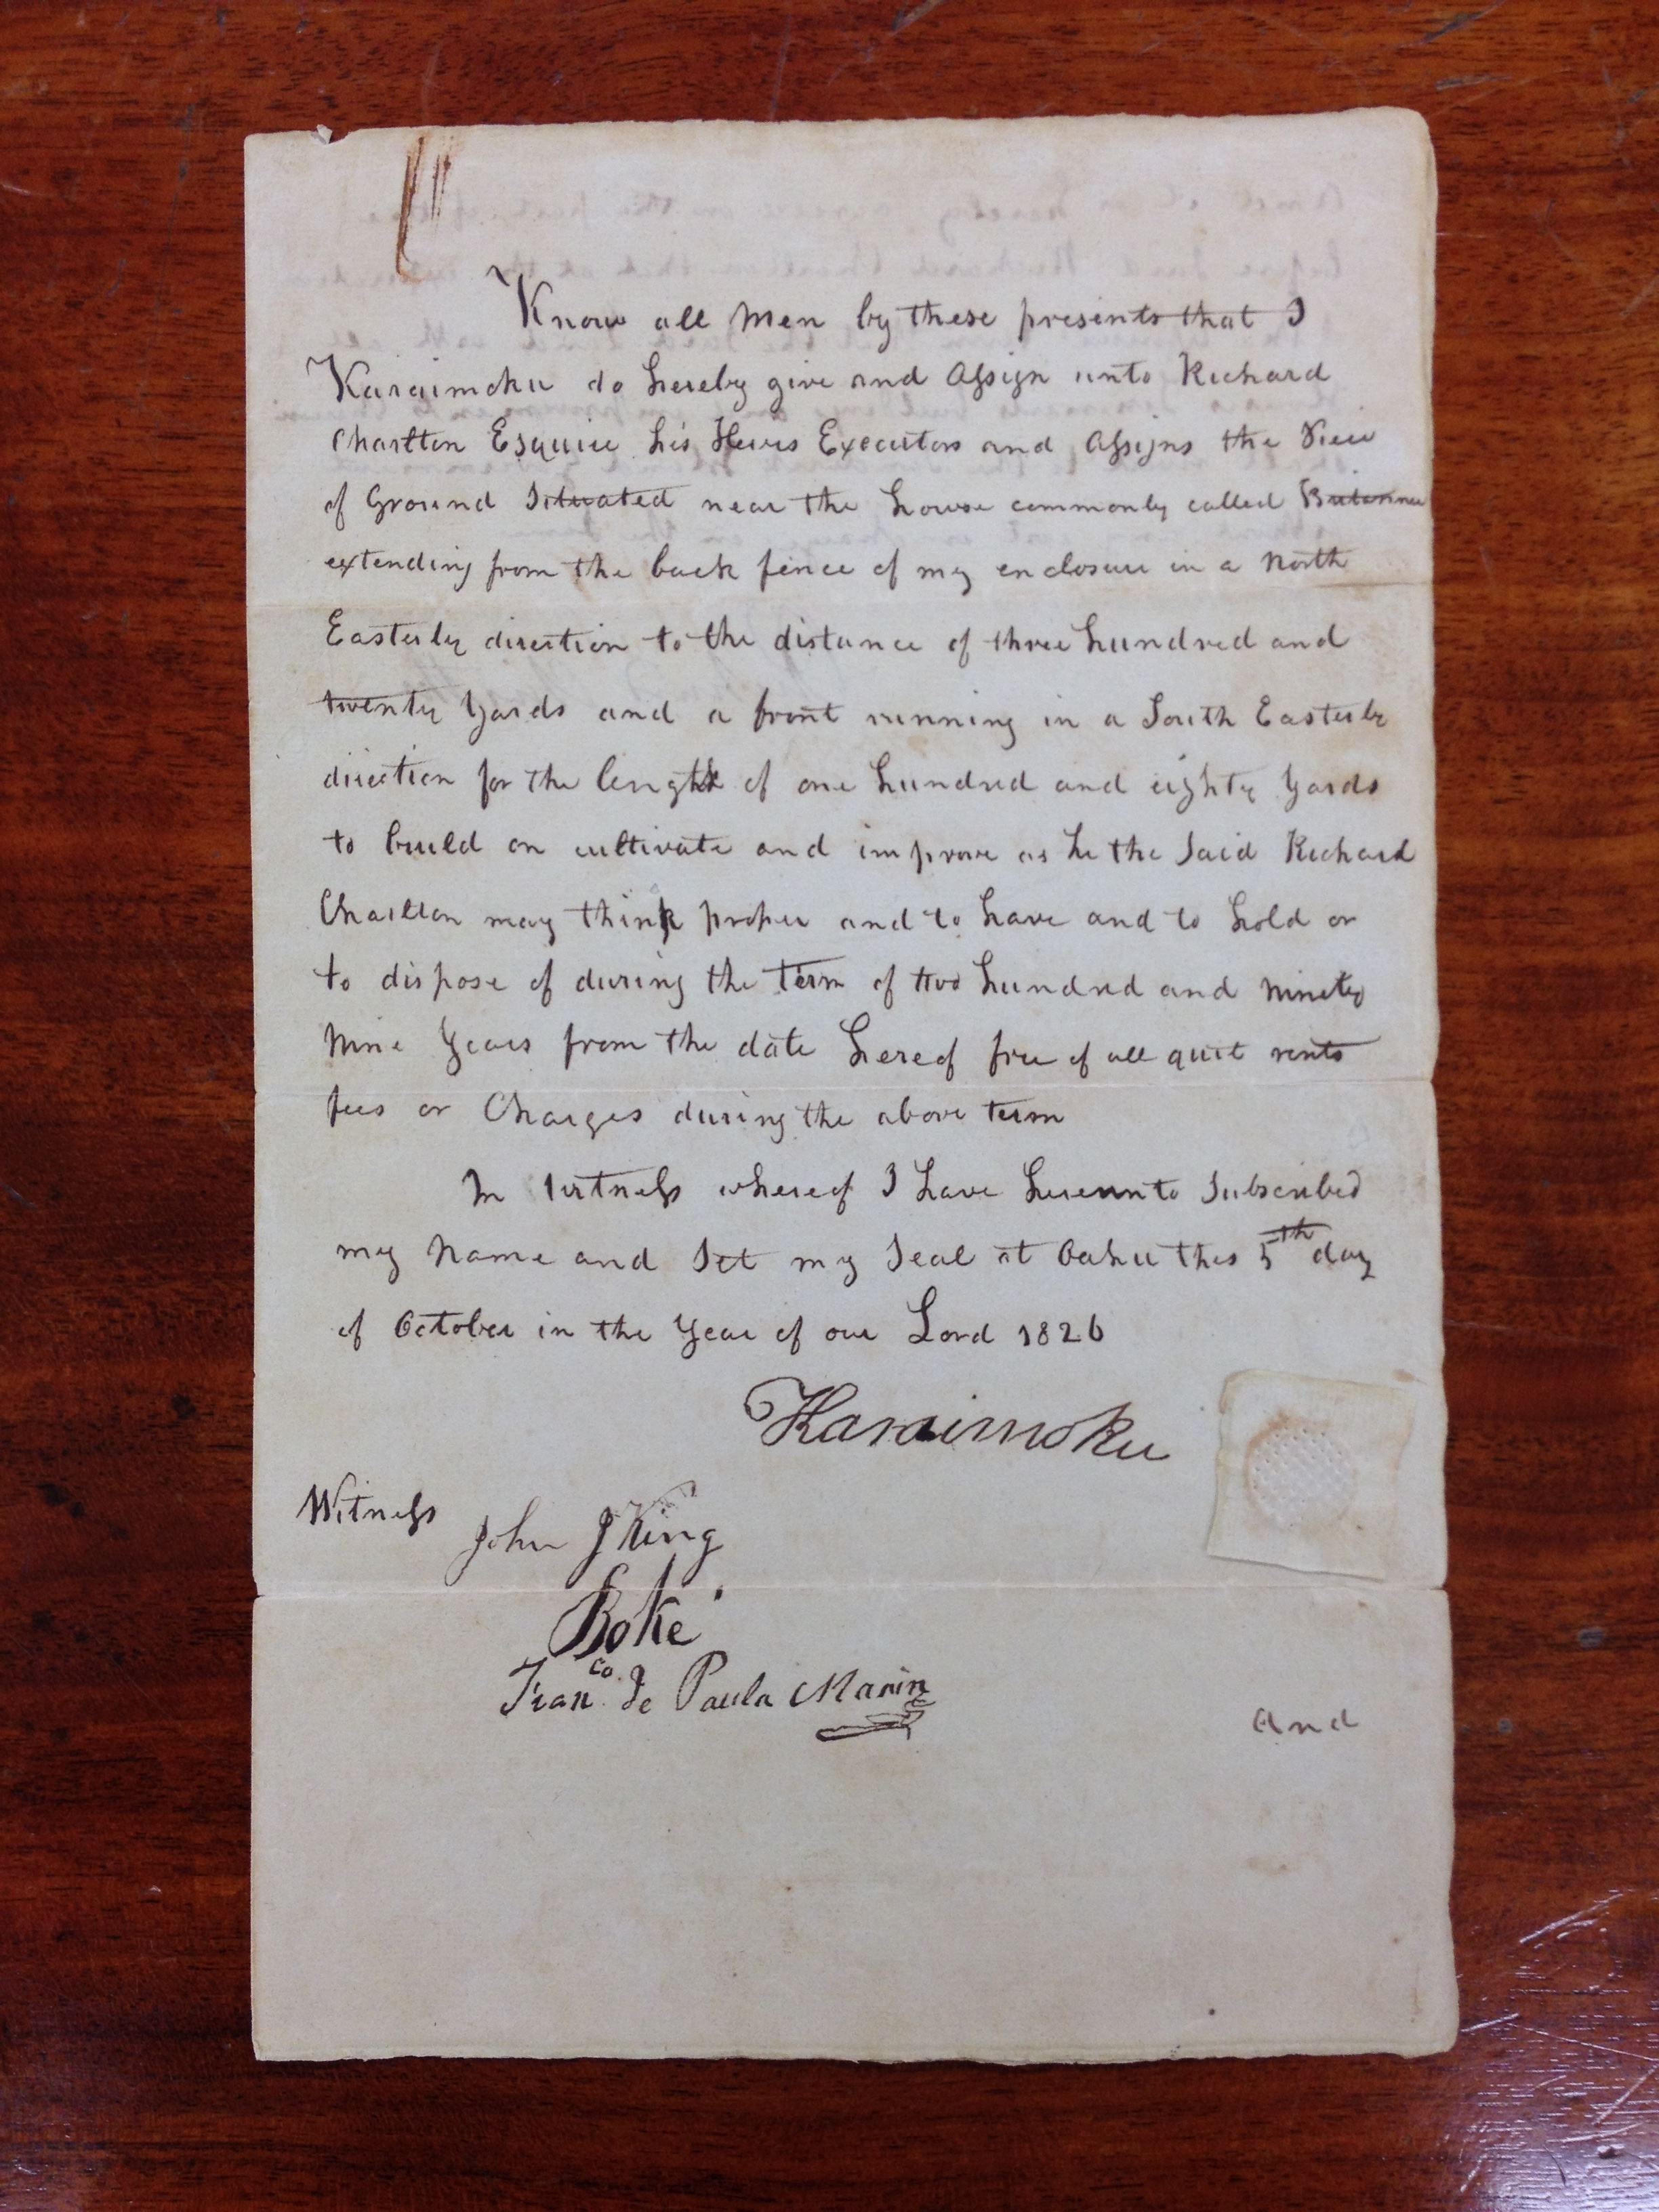 Know all Men by these presents that I
Karaimoku do hereby give and Assign unto Richard
Charlton Esquire his Heirs Executors and Assigns the
of Ground Situated near the house commonly called Britannia
extending from the back fence of my enclosure in a North
Easterly direction to the distance of three hundred and
twenty Yards and a front running in a South Easterly
direction for the length of one hundred and eighty Yards
to build on cultivate and improve as he the Said Richard
Charlton may think proper and to have and to hold or
to dispose of during the Term of two hundred and ninety
Nine Years from the date hereof free of all quit rents
fees or Charges during the above term
In Witness whereof I have hereunto Subscribed
my Name and Set my Seal at Oahu this 5th day
of October in the Year of our Lord 1826
Karaimoku
Witness
John J King
Boke
Franco. de Paula Marin
And